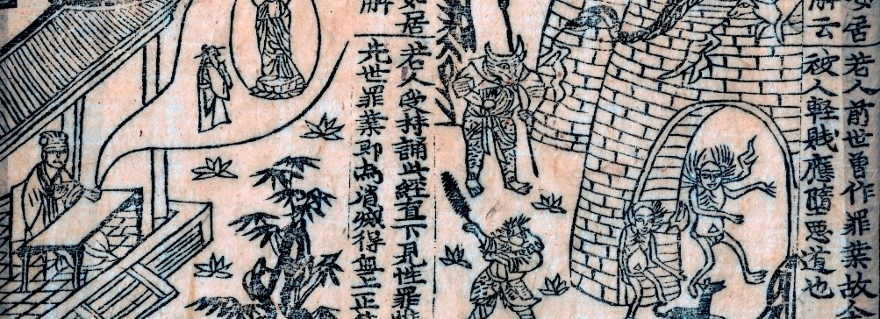 居若人前世曾作罪業故今
解云被人輕賤應墮惡道也
居若人受持誦此經直下見性罪
先世罪業即為消滅得無上正等